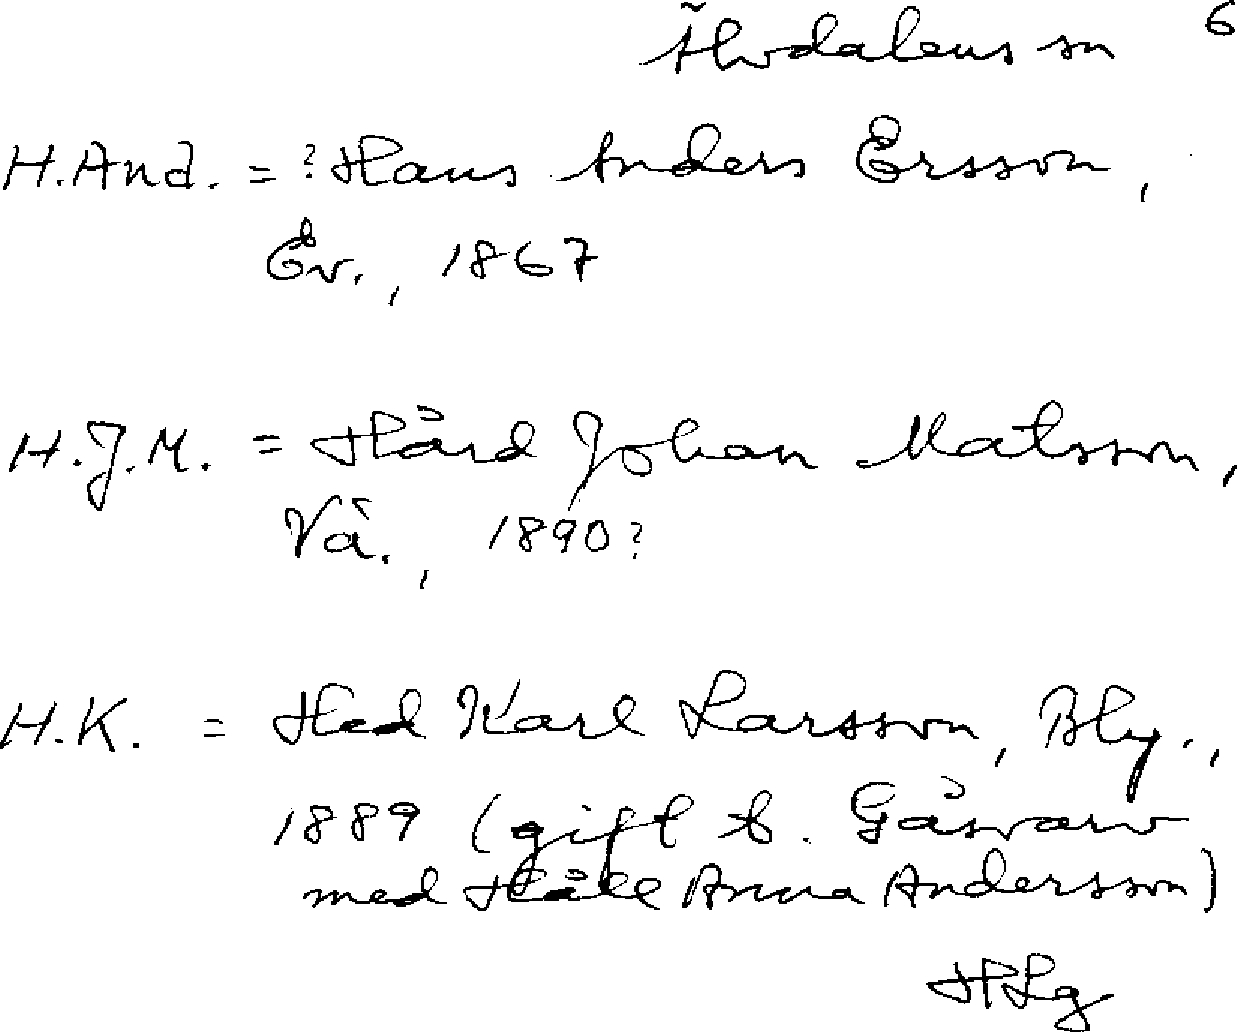 Älvdalens sn 6
H.And. = ?Hans Anders Ersson,
Ev., 1867
H.J.M. = Hård Johan Matsson,
Vå., 1890?
H.K. = Hed Karl Larsson, Bly.,
1889 (gift t. Gåsvarv
med Håll Anna Andersson)
HLg